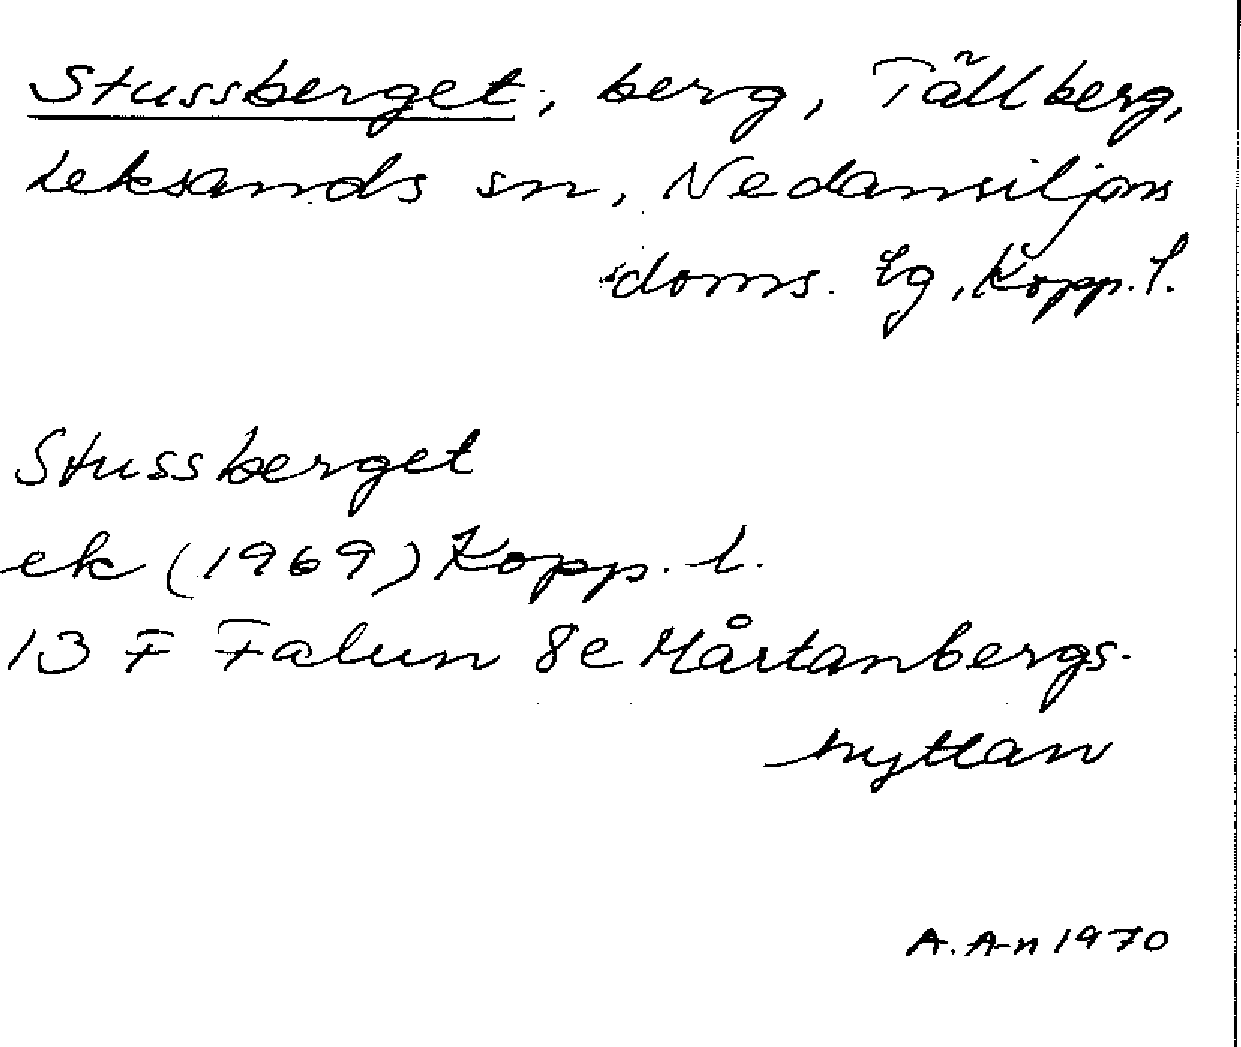 Stussberget, berg, Tällberg,
Leksands sn, Nedansiljans
doms. lg, Kopp. l.
Stussberget
ek (1969) Kopp. l.
13 F Falun 8e Mårtanbergs-
hyttan
A. A-n 1970